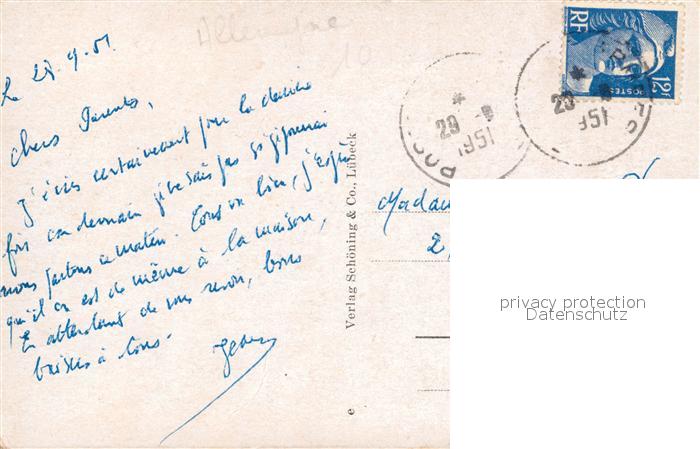 Allemagne
Le 28.9.51
Chers Parents,
J'écris certainement pour la dernière
fois car demain je ne sais pas si je pourrai
nous partons ce matin. Tous va bien, j'espère
qu'il en est de même à la maison,
En attendant de vous revoir, bons
baisers à tous.
Verlag Schöning & Co., Lübeck
e
RF
12F
POSTES
29 - 9
15H
1951
29
15H
1951
Madam
2,
privacy protection
Datenschutz